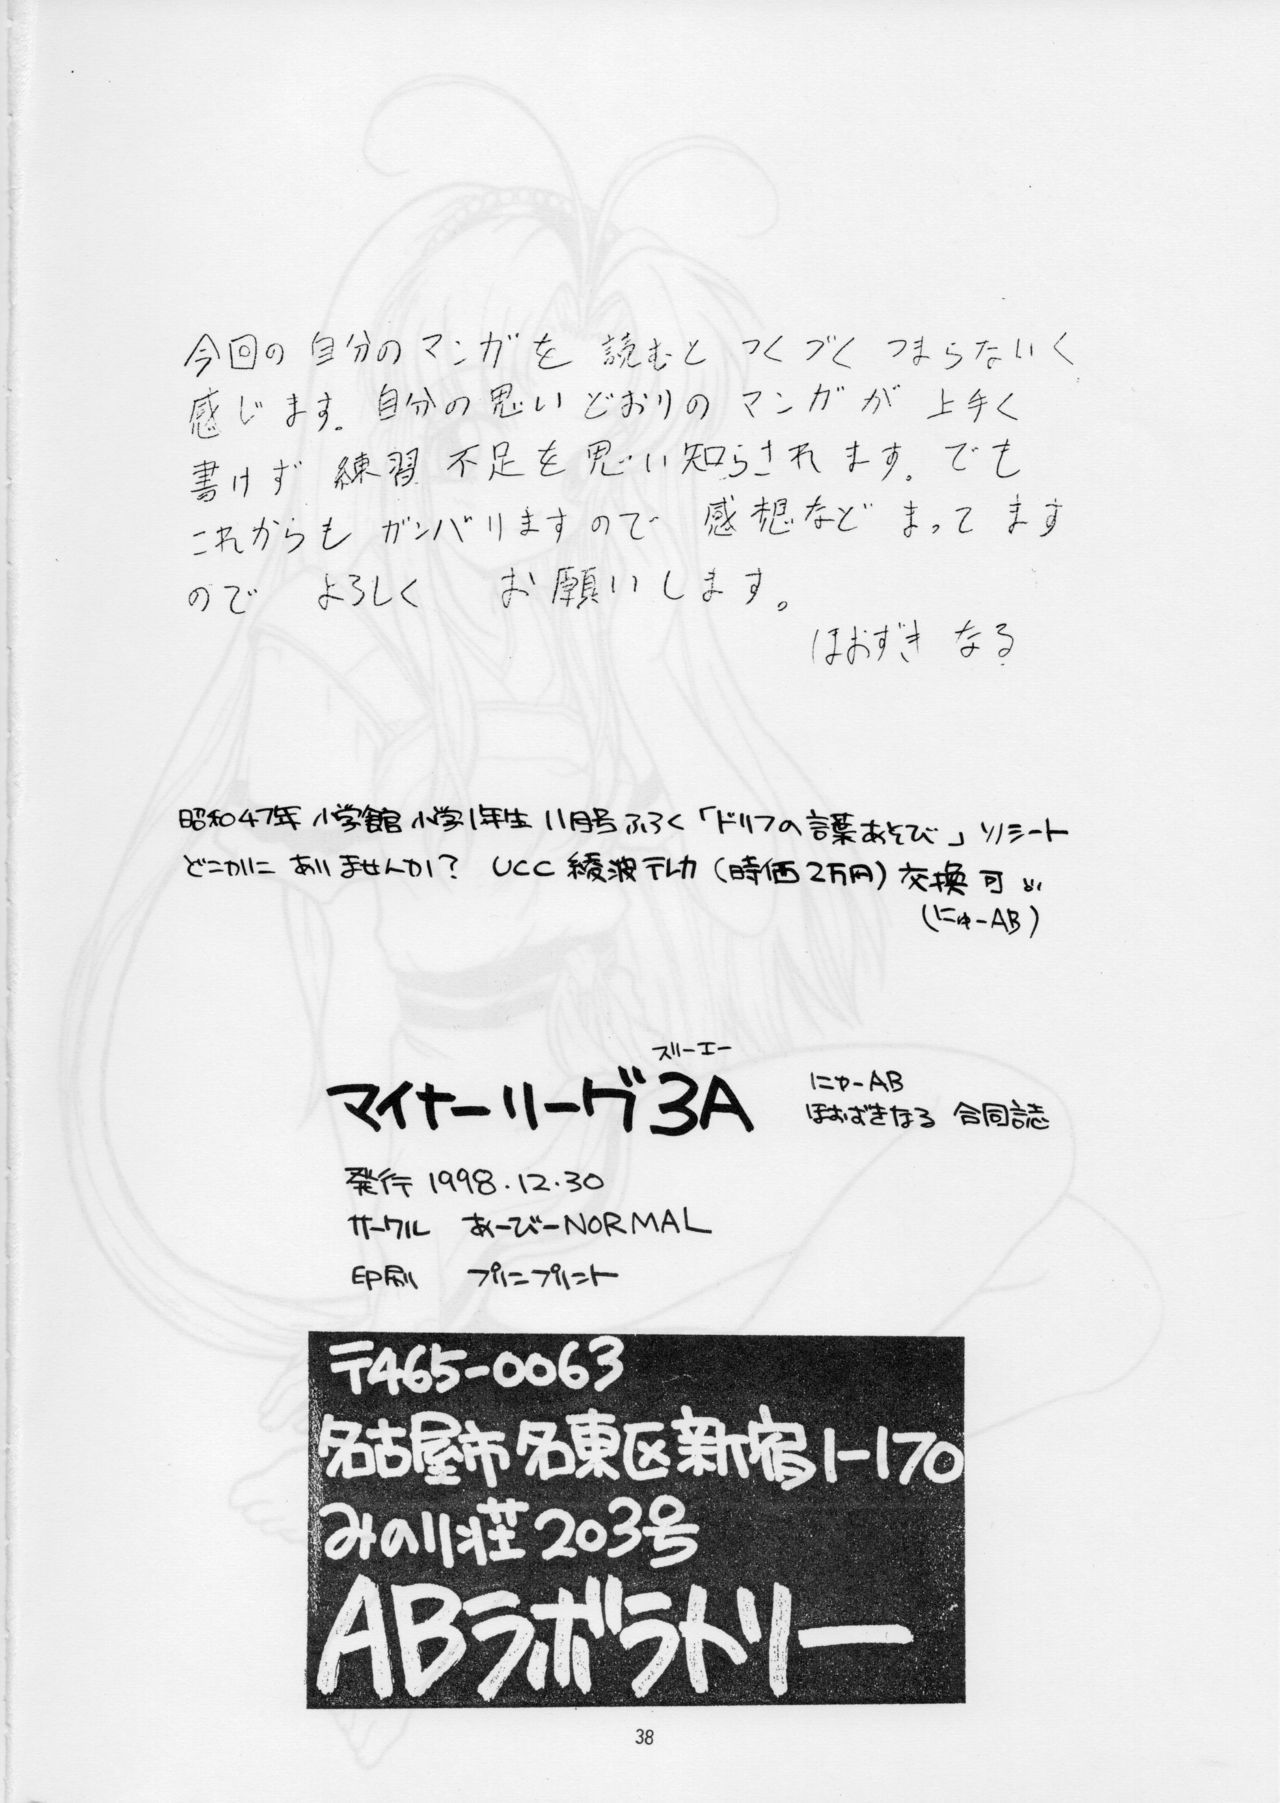 今回の自分のマンガを 読むと つくづく つまらないく
感じます。自分の思いどおりの マンガが 上手く
書けず 練習 不足を思い知らされます。でも
これからも ガンバリますので 感想など まってます
ので よろしく お願いします。
ほおずき なる
昭和47年 小学館 小学1年生 11月号ふろく「ドリフの言葉あそび」ソノシート
どこかに ありませんか? UCC 綾波テレカ(時価2万円)交換可
(にゅーAB)
スリーエー
マイナーリーグ3A
にゅーAB
ほおずきなる 合同誌
発行 1998.12.30
サークル あーびーNORMAL
印刷 プリニプリント
〒465-0063
名古屋市名東区新宿1-170
みのり荘203号
ABラボラトリー
38